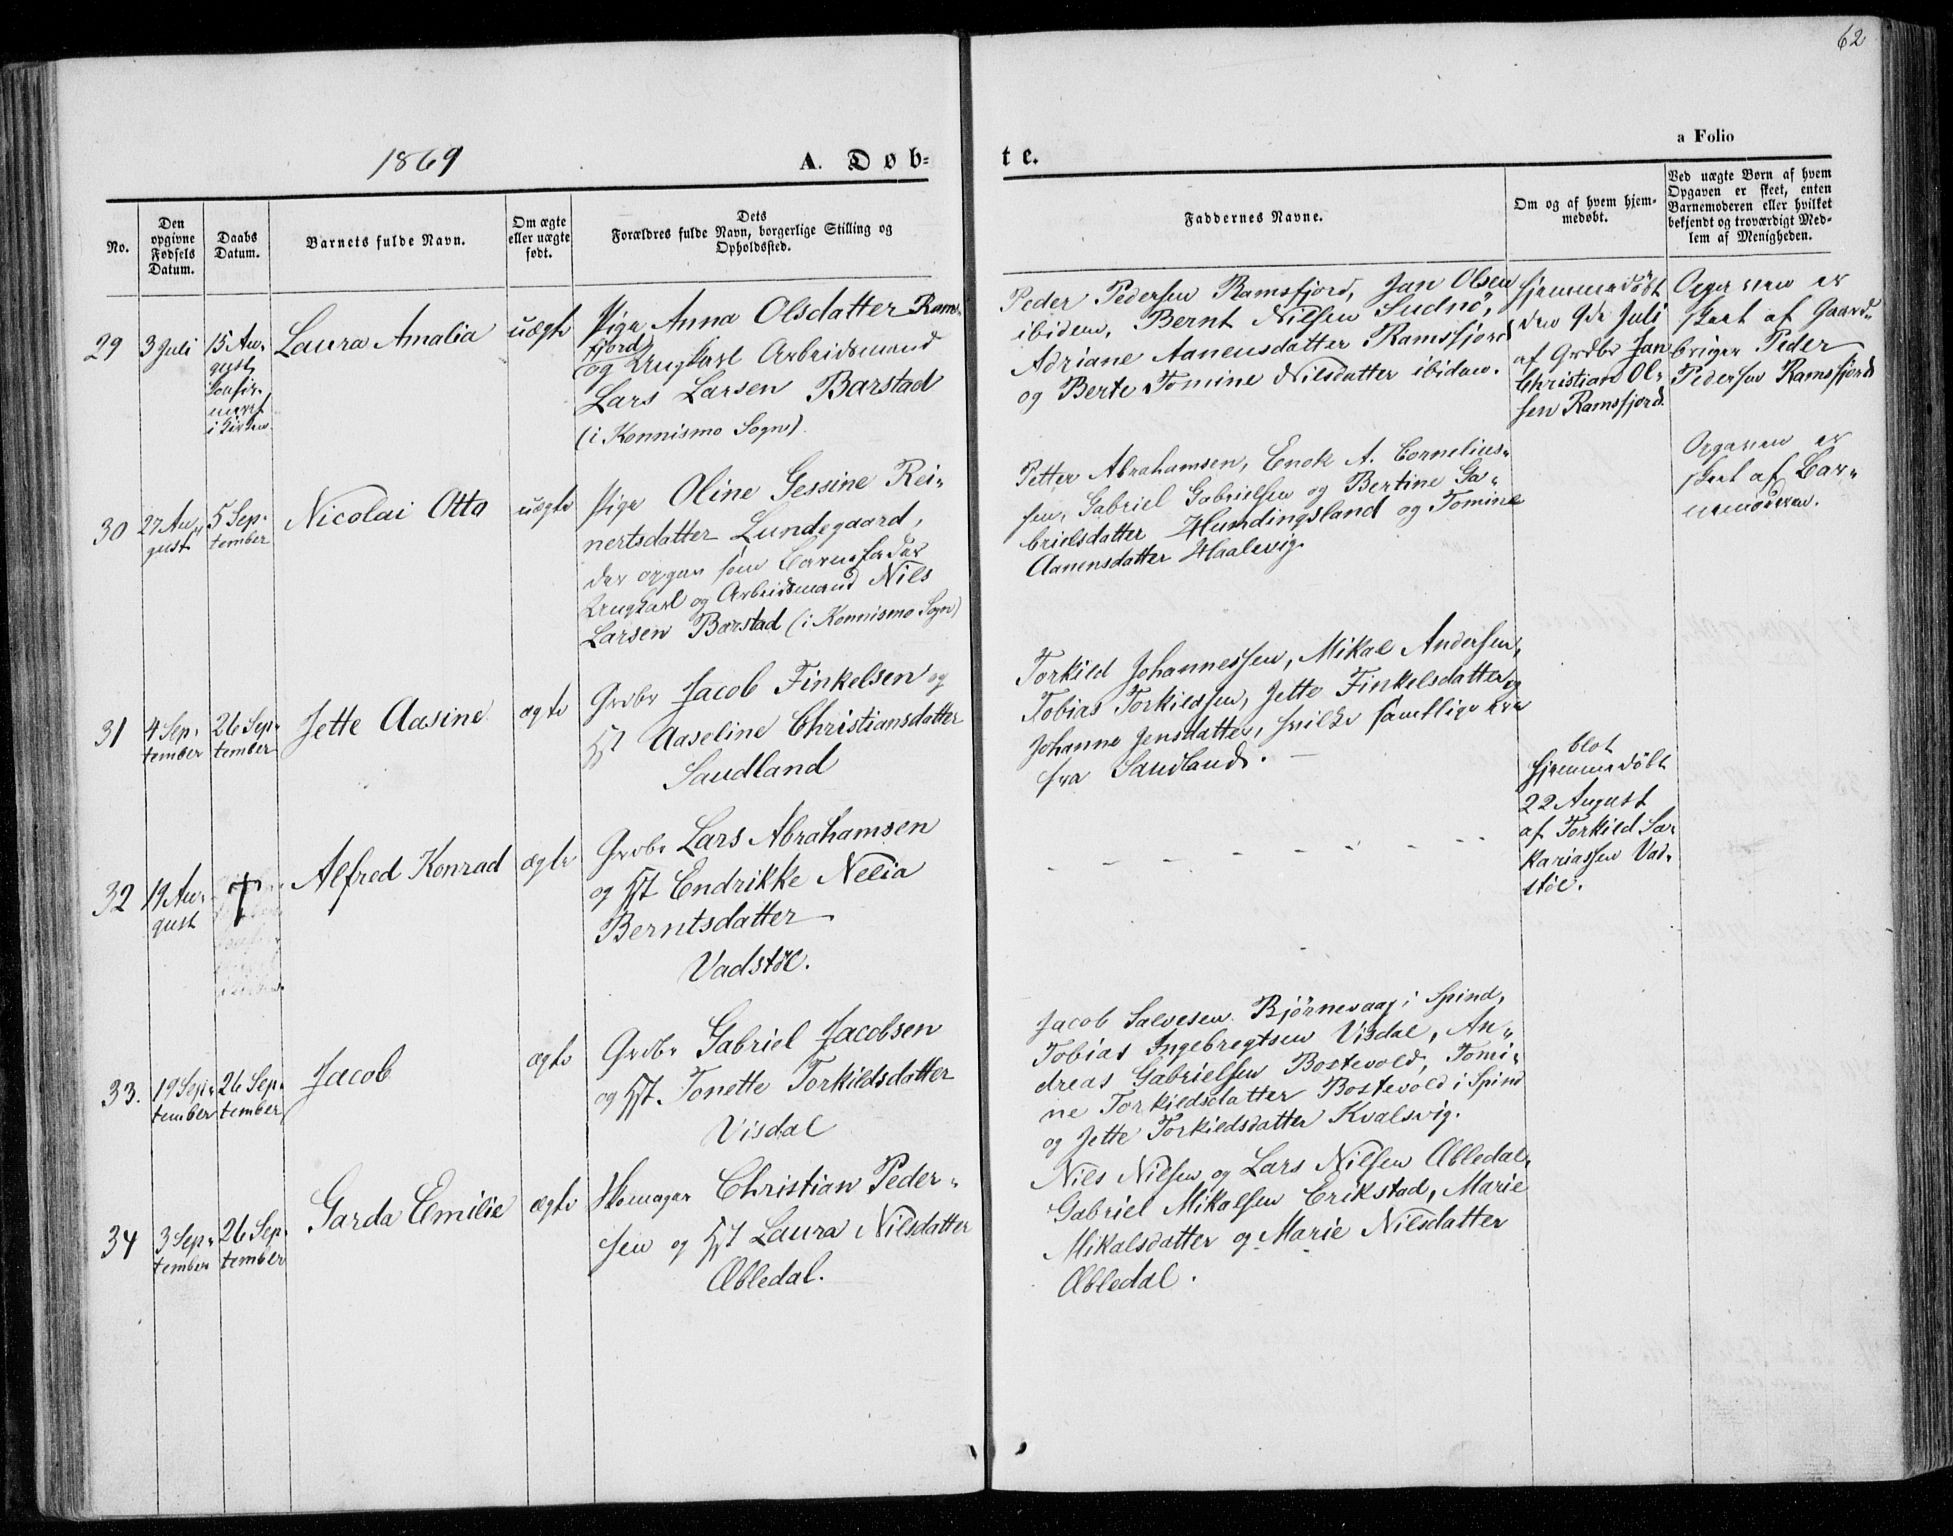 62
1869
A. Døb=
te.
a Folio
No.
Den opgivne Fødsels Datum.
Daabs Datum.
Barnets fulde Navn.
Om ægte eller uægte født.
Dets Forældres fulde Navn, borgerlige Stilling og Opholdssted.
Faddernes Navne.
Om og af hvem hjem-
medøbt.
Ved uægte Børn af hvem
Opgaven er skeet, enten
Barnemoderen eller hvilket
bekjendt og troværdigt Med-
lem af Menigheden.
29
3 Juli
15 Au-
gust
Confir-
meret
i Kirken
Laura Amalia
uægte
Pige Anna Olsdatter Rams-
fjord
og Ungkarl Arbeidsmand
Lars Larsen Barstad
(i Konnismo Sogn)
Peder Pedersen Ramsfjord, Jan Olsen
ibidem, Bernt Nilsen Sudnö,
Adriane Aanensdatter Ramsfjord
og Berte Tomine Nilsdatter ibidem.
Hjemmedöbt
den 9de Juli
af Grdbr Jan
Christian Ol-
sen Ramsfjord.
Opgaven er
skeet af Gaard-
bruger Peder
Pedersen Ramsfjord
30
27 Au-
gust
5 Sep-
tember
Nicolai Otto
uægte
Pige Oline Gessine Rei-
nertsdatter Lundegaard,
der opgav som Barnefader
Ungkarl og Arbeidsmand Nils
Larsen Barstad (i Konnismo Sogn)
Petter Abrahamsen, Enok A. Cornelius-
sen, Gabriel Gabrielsen og Bertine Ga-
brielsdatter Humdingsland og Tomine
Aanensdatter Haalevig.
Opgaven er
skeet af Bar-
nemoderen.
31
4 Sep-
tember
26 Sep-
tember
Jette Aasine
ægte
Grdbr Jacob Finkelsen og
Hst Aaseline Christiansdatter
Saudland
Torkild Johannessen, Mikal Andersen,
Tobias Torkildsen, Jette Finkelsdatter og
Johanne Jensdatter, hvilke samtlige ere
fra Saudland.
32
19 Au-
gust
†
Alfred Konrad
ægte
Grdbr Lars Abrahamsen
og Hst Endrikke Nelia
Berntsdatter
Vadstöl.
blot
hjemmedöbt
22 August
af Torkild Sa-
kariassen Vad-
stöl.
33.
19 Sep-
tember
26 Sep-
tember
Jacob
ægte
Grdbr Gabriel Jacobsen
og Hst. Tonette Torkildsdatter
Visdal
Jacob Salvesen Bjørnevaag i Spind,
Tobias Ingebregtsen Visdal, An-
dreas Gabrielsen Bostevold, Tomi-
ne Torkildsdatter Bostevold i Spind
og Jette Torkildsdatter Kvalsvig.
34
3 Sep-
tember
26 Sep-
tember
Garda Emilie
ægte
Skomager Christian Peder-
sen og Hst Laura Nilsdatter
Æbledal.
Nils Nilsen og Lars Nilsen Æbledal,
Gabriel Mikalsen Erikstad, Marie
Mikalsdatter og Marie Nilsdatter
Æbledal.